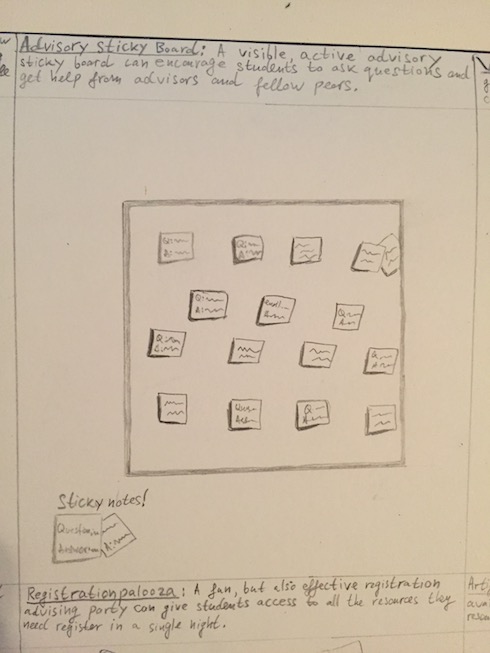 Advisory Sticky Board: A visible, active advisory
sticky board can encourage students to ask questions and
get help from advisors and fellow peers.
Q:
A:
Q:
A:
Q:
A:
Q:
A:
Q:
A:
Q:
A:
Q
A
Sticky notes!
Question
Answer
A:
Registrationpalooza: A fun, but also effective registration
advising party can give students access to all the resources they
need register in a single night.